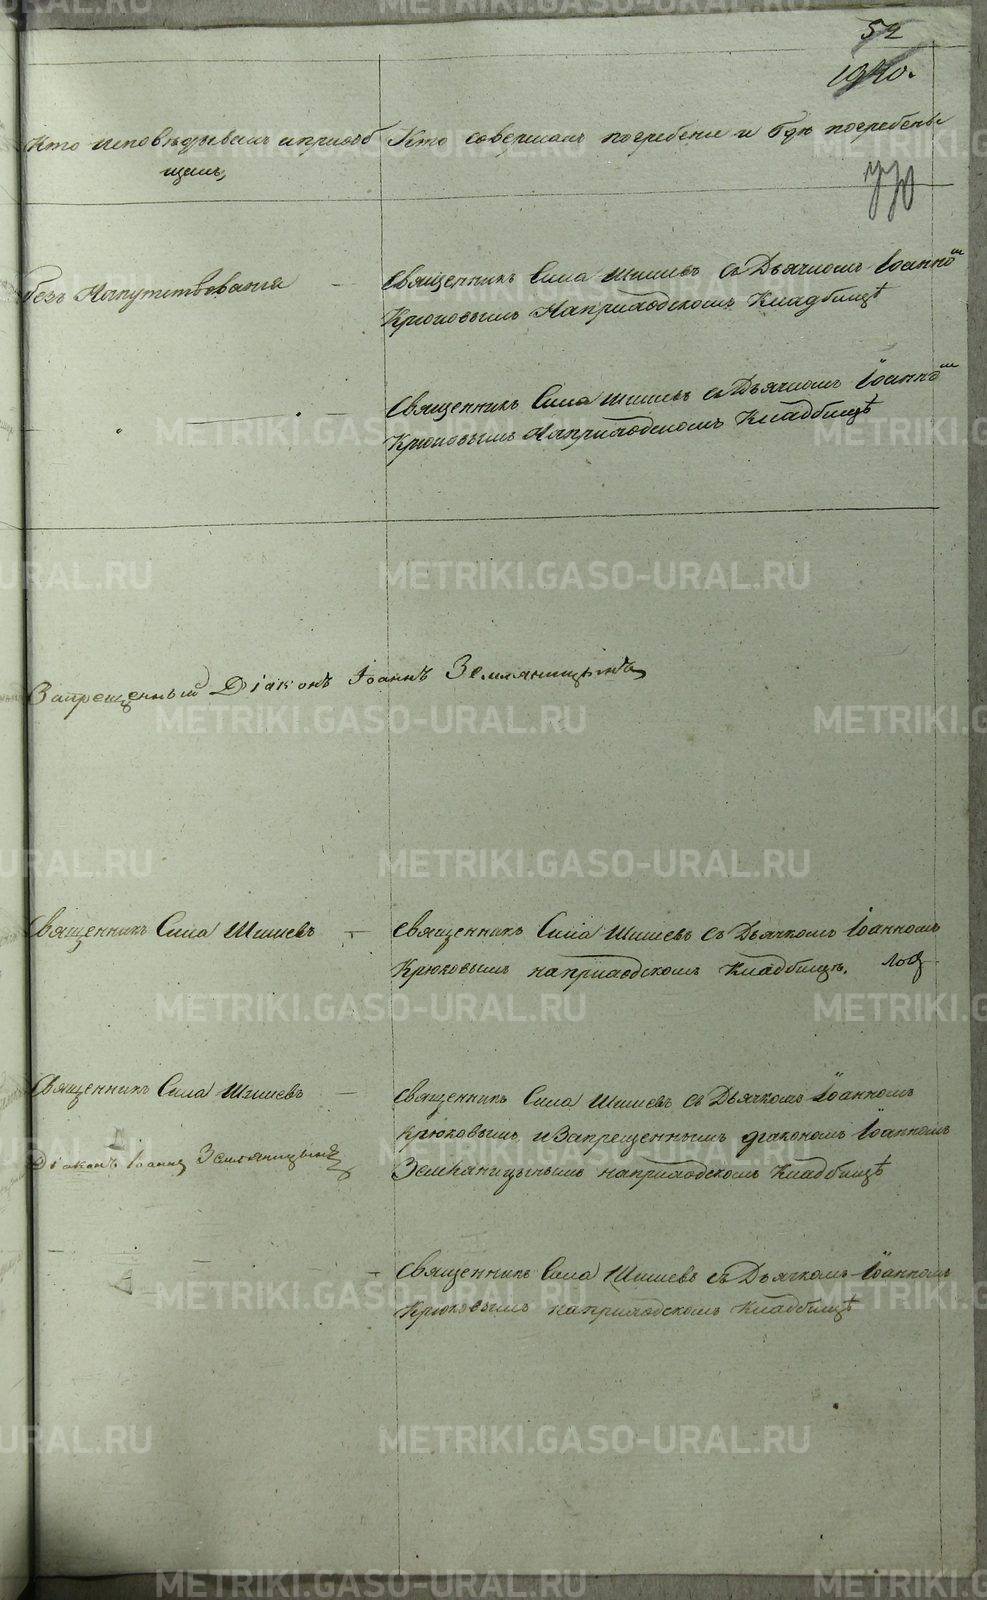 52
1940.
Кто исповѣдывалъ и приоб
щалъ,
Кто совершалъ погребенiе и гдѣ погребены
770
безъ Напутствованiя —
Священникъ Сила Шишевъ съ Дьячкомъ Iоанно^м
Крюковымъ На приходскомъ Кладбищѣ
Священникъ Сила Шишевъ съ Дьячкомъ Iоанно^м
Крюковымъ На приходскомъ Кладбищѣ
Запрещенный Дiаконъ Iоаннъ Земляницынъ
Священникъ Сила Шишевъ —
Священникъ Сила Шишевъ съ Дьячкомъ Iоанномъ
Крюковымъ на приходскомъ Кладбищѣ.
Священникъ Сила Шишевъ —
Дiаконъ Iоаннъ Земляницынъ
Священникъ Сила Шишевъ съ Дьячкомъ Iоанномъ
Крюковымъ и Запрещеннымъ дiакономъ Iоанномъ
Земляницынымъ на приходскомъ Кладбищѣ
Священникъ Сила Шишевъ съ Дьячкомъ Iоанномъ
Крюковымъ на приходскомъ Кладбищѣ
METRIKI.GASO-URAL.RU